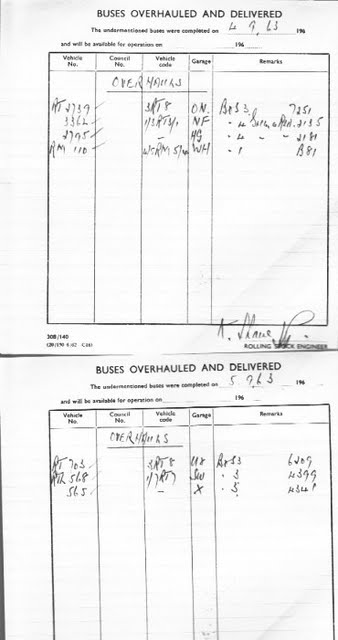 BUSES OVERHAULED AND DELIVERED
The undermentioned buses were completed on 4 9. 63 196
and will be available for operation on 196
Vehicle No. Council No. Vehicle code Garage Remarks
OVERHAULS
RT 2739 3RT8 ON. 7251
3362 NF 2135
2795 - HG - 4 2181
RM 110 WH - 1 B81
30B/140
ROLLING STOCK ENGINEER
BUSES OVERHAULED AND DELIVERED
The undermentioned buses were completed on 5 9. 63 196
and will be available for operation on 196
Vehicle No. Council No. Vehicle code Garage Remarks
OVERHAULS
RT 703 3RT8 6209
568 1/7RT7 SW - 3 4399
565 - X - 5